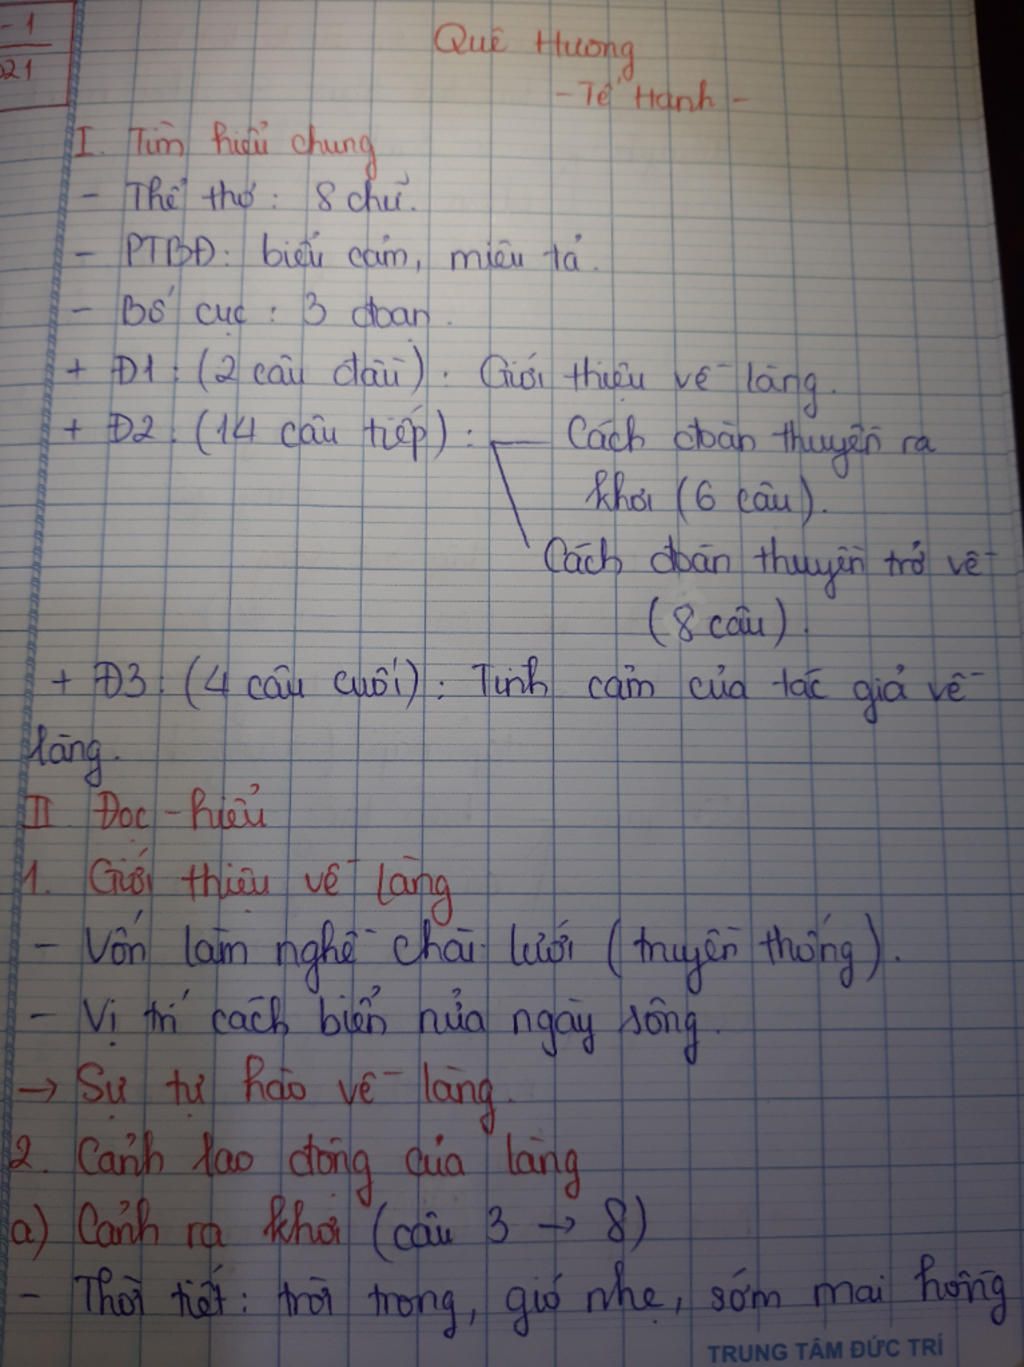 - 1
021
Quê Hương
- Tế Hanh -
I. Tìm hiểu chung
- Thể thơ: 8 chữ.
- PTBĐ: biểu cảm, miêu tả.
- Bố cục: 3 đoạn.
+ Đ1: (2 câu đầu): Giới thiệu về làng.
+ Đ2: (14 câu tiếp): Cách đoàn thuyền ra
khơi (6 câu).
Cách đoàn thuyền trở về
(8 câu).
+ Đ3: (4 câu cuối): Tình cảm của tác giả về
làng.
II Đọc - hiểu
1. Giới thiệu về làng
- Vốn làm nghề chài lưới (truyền thống).
- Vị trí cách biển nửa ngày sông.
→ Sự tự hào về làng.
2. Cảnh lao động của làng
a) Cảnh ra khơi (câu 3 → 8)
- Thời tiết: trời trong, gió nhẹ, sớm mai hồng
TRUNG TÂM ĐỨC TRÍ